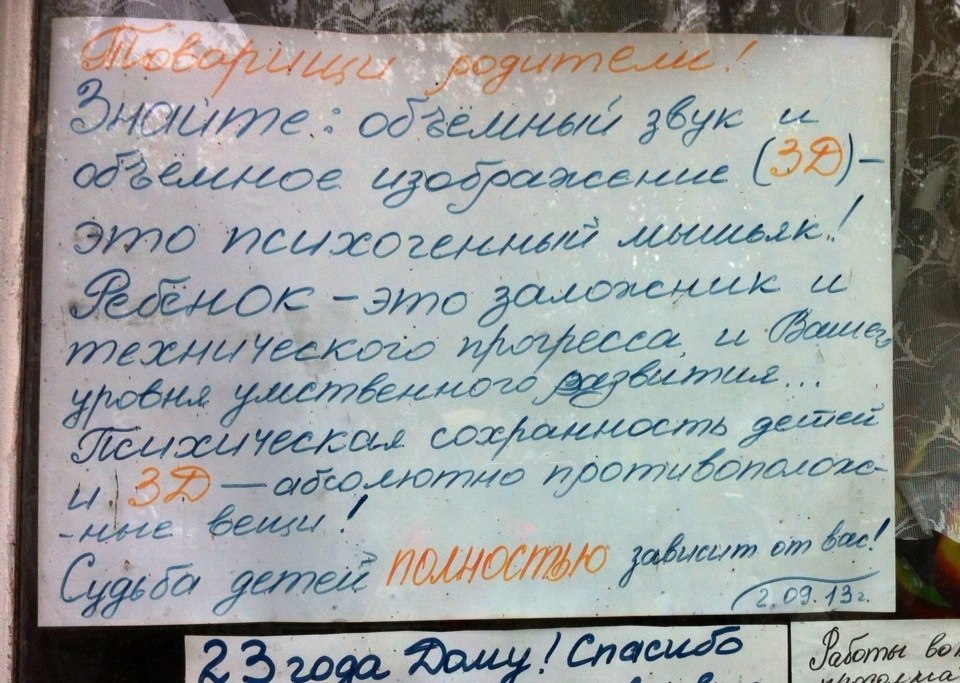 Товарищи родители!
Знайте: объёмный звук и
объёмное изображение (3Д) –
это психогенный мышьяк!
Ребёнок – это заложник и
технического прогресса, и Вашего
уровня умственного развития...
Психическая сохранность детей
и 3Д – абсолютно противополож-
-ные вещи!
Судьба детей ПОЛНОСТЬЮ зависит от вас!
2.09.13 г.
23 года Дому! Спасибо
Работы